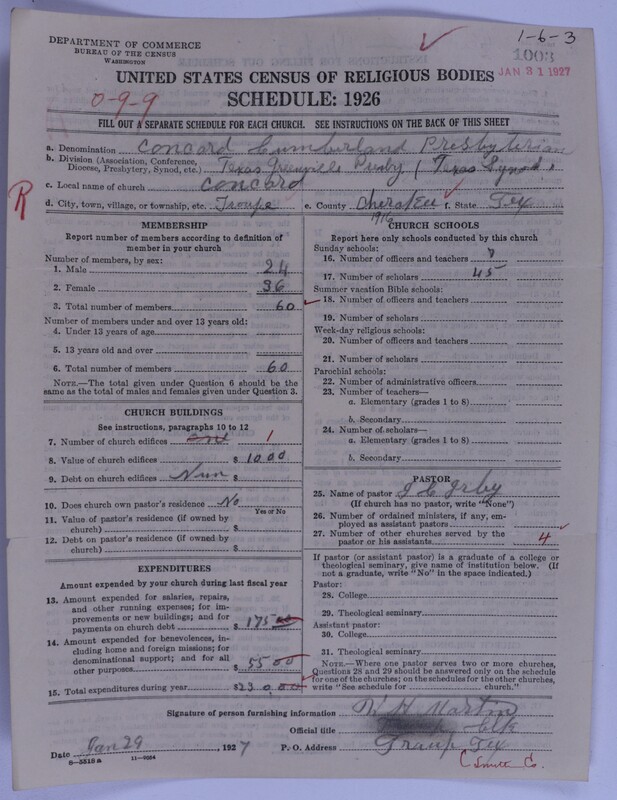 DEPARTMENT OF COMMERCE
BUREAU OF THE CENSUS
WASHINGTON
1-6-3
1003
JAN 31 1927
UNITED STATES CENSUS OF RELIGIOUS BODIES
0-9-9
SCHEDULE: 1926
FILL OUT A SEPARATE SCHEDULE FOR EACH CHURCH. SEE INSTRUCTIONS ON THE BACK OF THIS SHEET
a. Denomination Concord Cumberland Presbyterian
b. Division (Association, Conference, Diocese, Presbytery, Synod, etc.) Texas Greenville Presby (Texas Synod)
c. Local name of church Concord
R
d. City, town, village, or township, etc. Troupe e. County Cherokee f. State Tex
1916
MEMBERSHIP
Report number of members according to definition of member in your church
Number of members, by sex:
1. Male 24
2. Female 36
3. Total number of members 60
Number of members under and over 13 years old:
4. Under 13 years of age
5. 13 years old and over
6. Total number of members 60
NOTE.—The total given under Question 6 should be the same as the total of males and females given under Question 3.
CHURCH BUILDINGS
See instructions, paragraphs 10 to 12
7. Number of church edifices one 1
8. Value of church edifices $ 1000
9. Debt on church edifices $ Nun
10. Does church own pastor's residence No
Yes or No
11. Value of pastor's residence (if owned by church) $
12. Debt on pastor's residence (if owned by church) $
EXPENDITURES
Amount expended by your church during last fiscal year
13. Amount expended for salaries, repairs, and other running expenses; for improvements or new buildings; and for payments on church debt $ 175 00
14. Amount expended for benevolences, including home and foreign missions; for denominational support; and for all other purposes $ 55 00
15. Total expenditures during year $230.00
CHURCH SCHOOLS
Report here only schools conducted by this church
Sunday schools:
16. Number of officers and teachers
17. Number of scholars 45
Summer vacation Bible schools:
18. Number of officers and teachers
19. Number of scholars
Week-day religious schools:
20. Number of officers and teachers
21. Number of scholars
Parochial schools:
22. Number of administrative officers
23. Number of teachers—
a. Elementary (grades 1 to 8)
b. Secondary
24. Number of scholars—
a. Elementary (grades 1 to 8)
b. Secondary
PASTOR
25. Name of pastor Irby
(If church has no pastor, write "None")
26. Number of ordained ministers, if any, employed as assistant pastors
27. Number of other churches served by the pastor or his assistants 4
If pastor (or assistant pastor) is a graduate of a college or theological seminary, give name of institution below. (If not a graduate, write "No" in the space indicated.)
Pastor:
28. College
29. Theological seminary
Assistant pastor:
30. College
31. Theological seminary
NOTE.—Where one pastor serves two or more churches, Questions 28 and 29 should be answered only on the schedule for one of the churches; on the schedules for the other churches, write "See schedule for church."
Signature of person furnishing information W H Martin
Official title Clk
Date Jan 29, 1927 P. O. Address Troup Tex
8-5518 a 11-9034
(Smith Co.